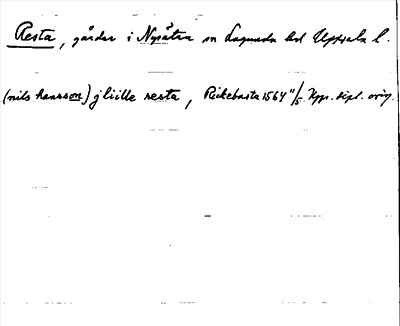 Resta, gårdar i Nysätra sn Lagunda hd Uppsala l.
(nils hansson) j liille resta, Rickebasta 1564 11/5 Upps. dipl. orig.